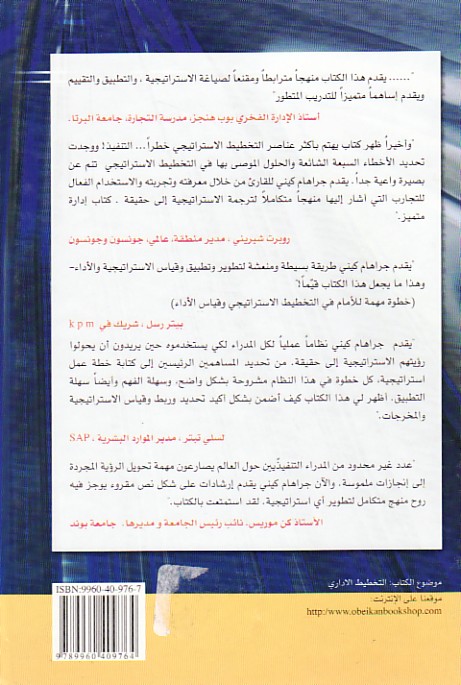 "...... يقدم هذا الكتاب منهجاً مترابطاً ومقنعاً لصياغة الاستراتيجية ، والتطبيق والتقييم
ويقدم إسا‌هماً متميزاً للتدريب المتطور"
أستاذ الإدارة الفخري بوب هنجز، مدرسة التجارة، جامعة البرتا.
"وأخيراً ظهر كتاب يهتم بأكثر عناصر التخطيط الاستراتيجي خطراً... التنفيذ! ووجدت
تحديد الأخطاء السبعة الشائعة والحلول الموصى بها في التخطيط الاستراتيجي تنم عن
بصيرة واعية جداً. يقدم جراهام كيني للقارئ من خلال معرفته وتجربته والاستخدام الفعال
للتجارب التي أشار إليها منهجاً متكاملاً لترجمة الاستراتيجية إلى حقيقة . كتاب إدارة
متميز."
روبرت شيريني، مدير منطقة، عالمي، جونسون وجونسون
"يقدم جراهام كيني طريقة بسيطة ومنعشة لتطوير وتطبيق وقياس الاستراتيجية والأداء–
وهذا ما يجعل هذا الكتاب قيّماً!"
(خطوة مهمة للأمام في التخطيط الاستراتيجي وقياس الأداء)
بيتر رسل ، شريك في k p m
"يقدم جراهام كيني نظاماً عملياً لكل المدراء لكي يستخدموه حين يريدون أن يحولوا
رؤيتهم الاستراتيجية إلى حقيقة، من تحديد المساهمين الرئيسين إلى كتابة خطة عمل
استراتيجية، كل خطوة في هذا النظام مشروحة بشكل واضح، وسهلة الفهم وأيضاً سهلة
التطبيق، أظهر لي هذا الكتاب كيف أضمن بشكل أكيد تحديد وربط وقياس الاستراتيجية
والمخرجات."
لسلي تيتر ، مدير الموارد البشرية ، SAP
"عدد غير محدود من المدراء التنفيذيين حول العالم يصارعون مهمة تحويل الرؤية المجردة
إلى إنجازات ملموسة، والآن جراهام كيني يقدم إرشادات على شكل نص مقروء يوجز فيه
روح منهج متكامل لتطوير أي استراتيجية، لقد استمتعت بالكتاب."
الأستاذ كن موريس، نائب رئيس الجامعة و مديرها، جامعة بوند
موضوع الكتاب: التخطيط الاداري
موقعنا على الإنترنت:
http://www.obeikanbookshop.com
ISBN:9960-40-976-7
9789960409764